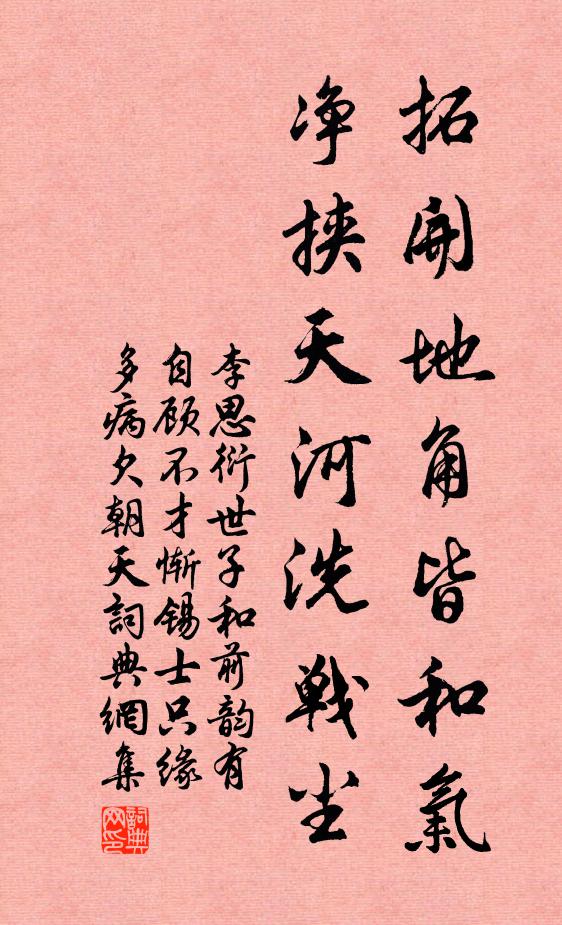 拓開地角皆和氣
净挾天河洗戰尘
李思衍世子和前韵有
自顾不才惭锡士只缘
多病欠朝天詞典網集
詞典
网印